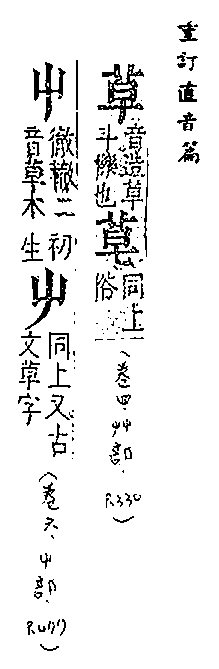 重訂直音篇
草 音澡草斗櫟也 草 同上俗（卷四、艸部、P.330）
屮 徹轍二音草木初生 屮 同上又古文草字（卷六、屮部、P.477）